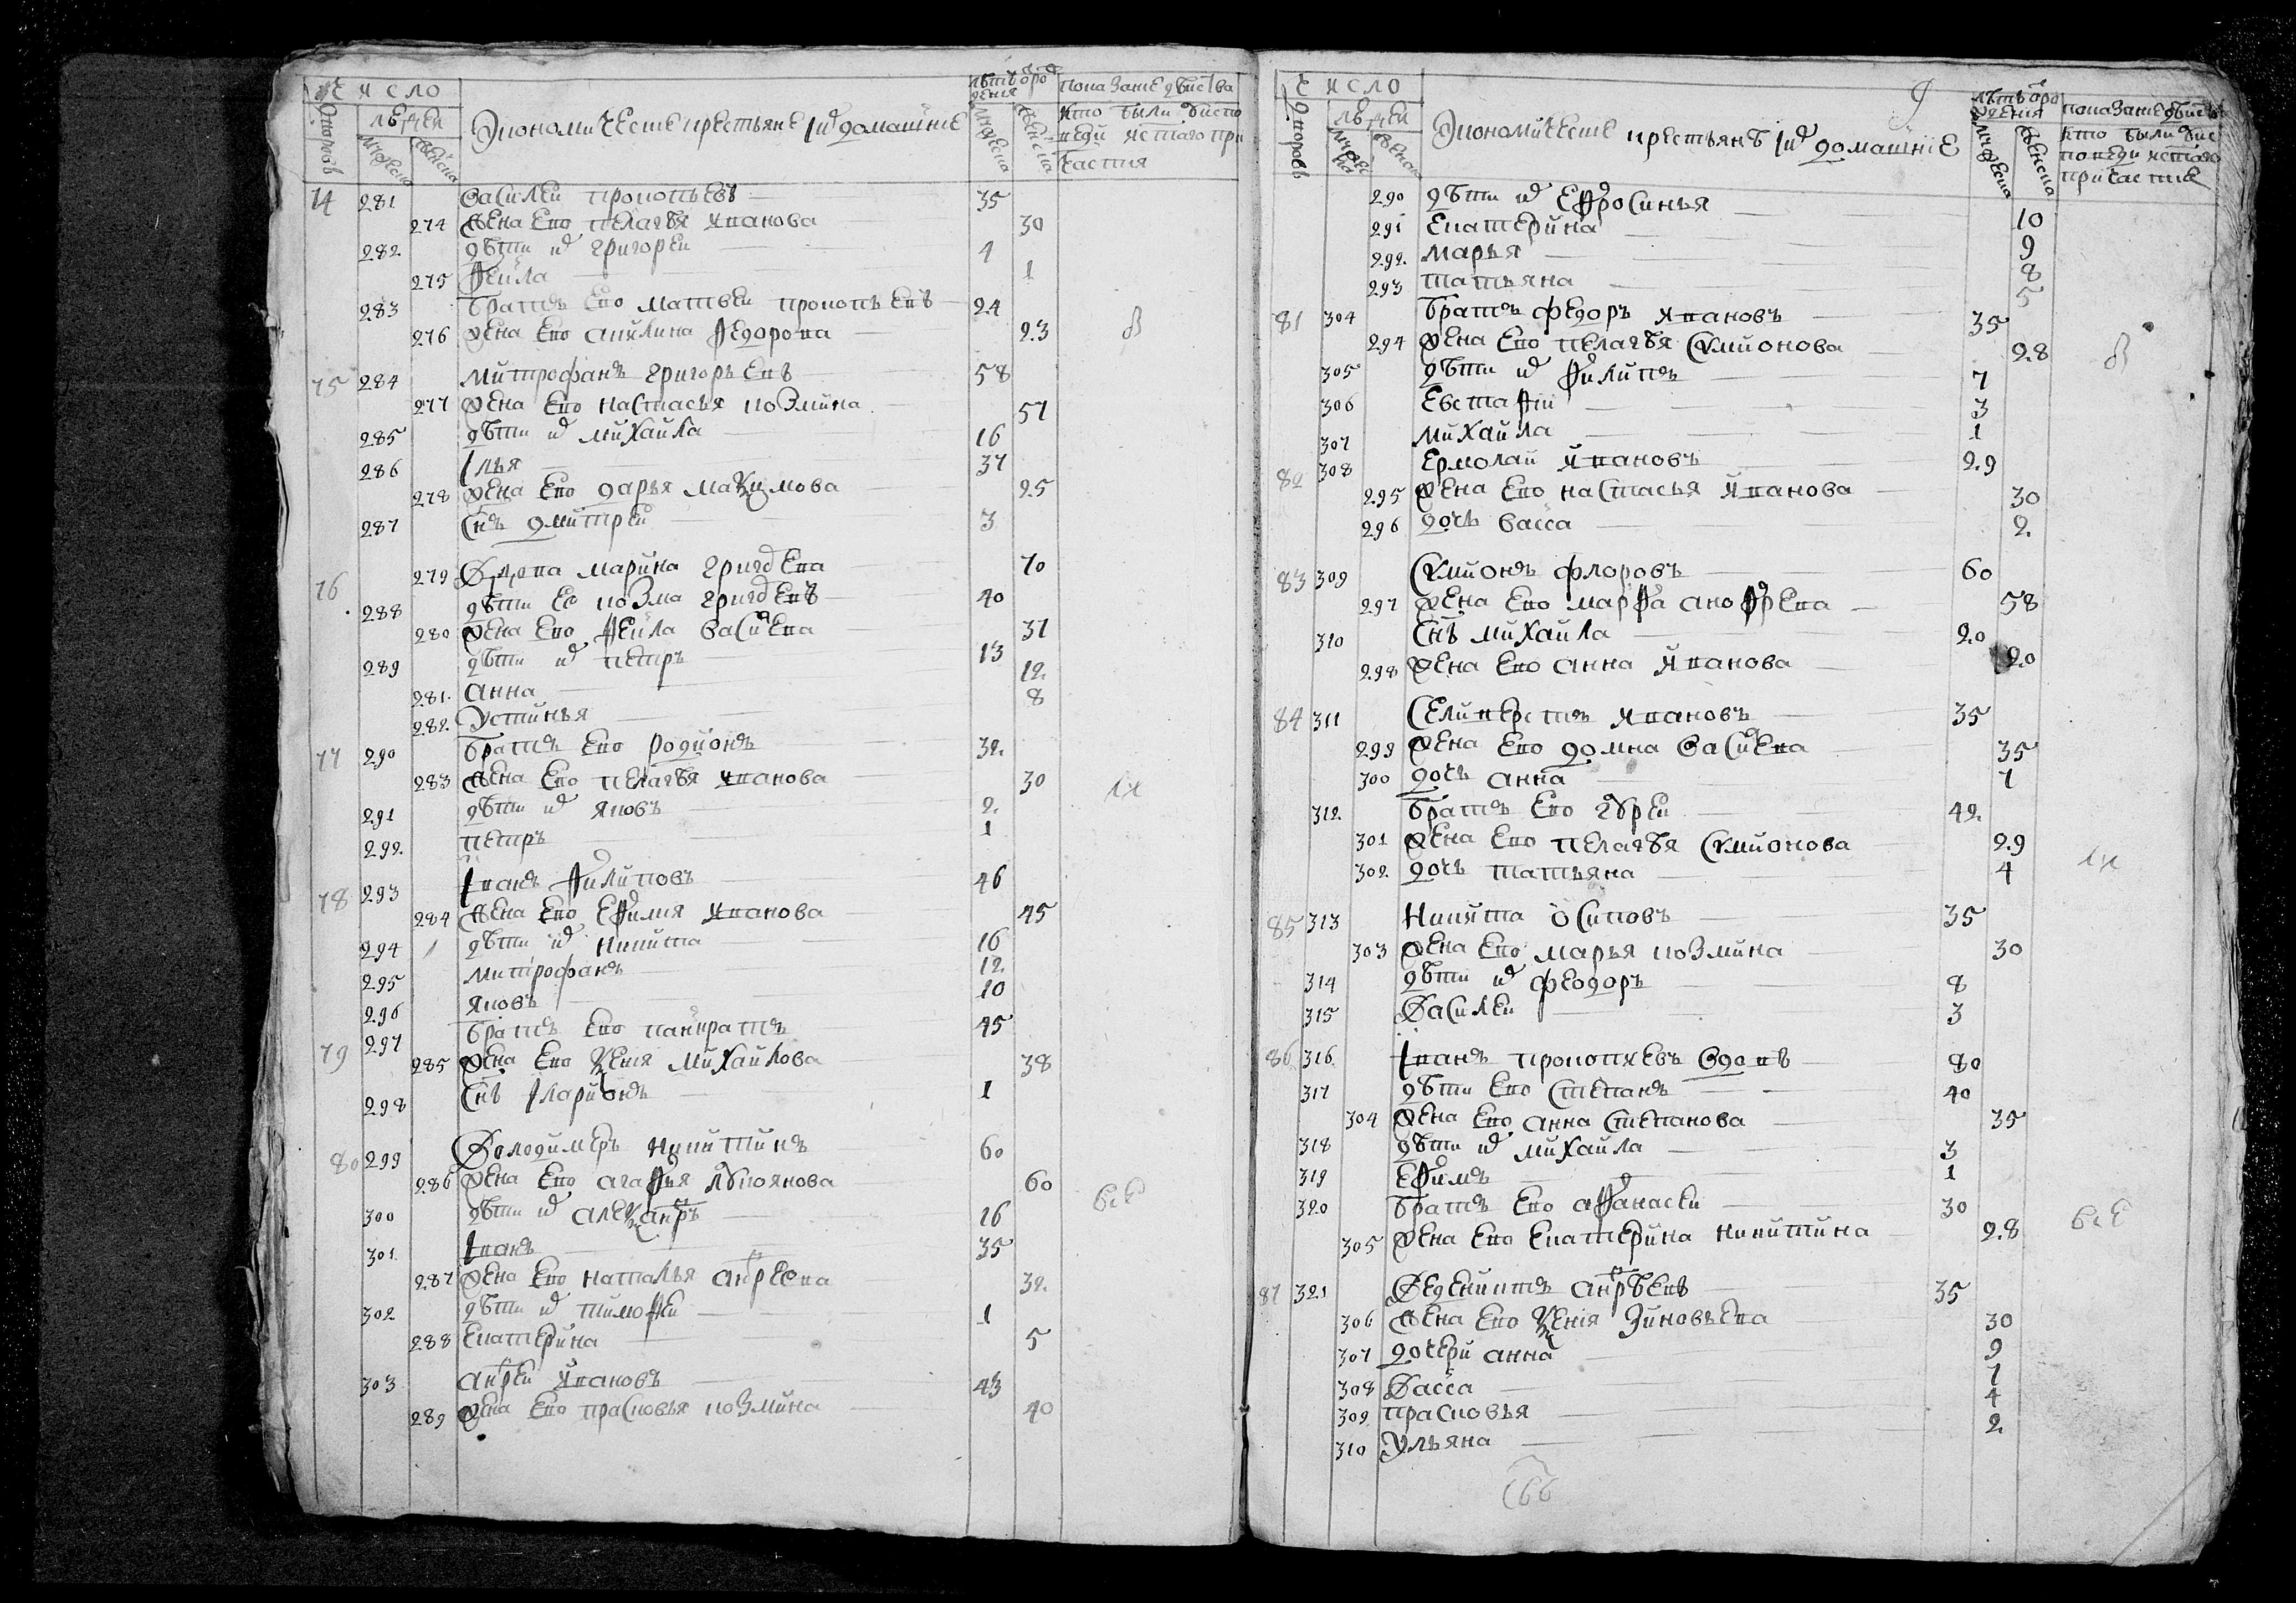 число
людей
дворовъ
мужеска
женска
Экономические крестьяне и ихъ домашние
лѣтъ от рождения
мужеска
женска
показание действа
кто были у исповеди и святаго причастия
74 281 Василеи Прокопьевъ 35
274 жена ево Пелагѣя Иванова 30
282 дѣти их Григореи 4
275 Фекла 1
283 братъ ево Матвеи Прокопьевъ 24
276 жена ево Акилина Федорова 23 в
75 284 Митрофанъ Григорьевъ 58
277 жена ево Настасья Козмина 57
285 дѣти их Михаила 16
286 Илья 37
278 жена ево Дарья Маѯимова 25
287 снъ Дмитреи 3
76 279 Вдова Марина Григоева 70
288 дѣти ее Козма Григоевъ 40
280 жена ево Фекла Васиева 37
289 дѣти их Петръ 13
281 Анна 12
282 Устинья 8
77 290 братъ ево Родионъ 32
283 жена ево Пелагѣя Иванова 30 сѧ
291 дѣти их Яковъ 2
292 Петръ 1
78 293 Иванъ Филиповъ 46
284 жена ево Ефимия Иванова 45
294 дѣти их Никита 16
295 Митрофанъ 12
296 Яковъ 10
79 297 братъ ево Панкратъ 45
285 жена ево Ѯения Михаилова 38
298 снъ Иларионъ 1
80 299 Володимеръ Никитинъ 60
286 жена ево Агафья Лукоянова 60 все
300 дѣти их Алеѯандръ 16
301 Иванъ 35
287 жена ево Наталья Андреева 32
302 дѣти их Тимофеи 1
288 Екатерина 5
303 Андреи Ивановъ 43
289 жена ево Прасковья Козмина 40
9
число
людей
дворовъ
мужеска
женска
Экономические крестьянѣ и ихъ домашние
лѣтъ от рождения
мужеска
женска
показание действа
кто были у исповеди и святаго причастия
290 дѣти их Ефросинья 10
291 Екатерина 9
292 Марья 8
293 Татьяна 5
81 304 братъ Федоръ Ивановъ 35
294 жена ево Пелагѣя Симионова 28 в
305 дѣти их Филипъ 7
306 Евстафии 3
307 Михаила 1
82 308 Ермолаи Ивановъ 29
295 жена ево Настасья Иванова 30
296 дочь Васса 2
83 309 Симионъ Флоровъ 60
297 жена ево Марфа Анофрева 58
310 снъ Михаила 20
298 жена ево Анна Иванова 20
84 311 Селиверстъ Ивановъ 35
299 жена ево Домна Васиева 35
300 дочь Анна 7
312 братъ ево Гурей 42
301 жена ево Пелагѣя Симионова 29
302 дочь Татьяна 4 сѧ
85 313 Никита Осиповъ 35
303 жена ево Марья Козмина 30
314 дѣти их Феодоръ 8
315 Василеи 3
86 316 Иванъ Прокопиевъ вдовъ 80
317 дѣти ево Степанъ 40
304 жена ево Анна Степанова 35
318 дѣти их Михаила 3
319 Ефимъ 1
320 братъ ево Афанасеи 30
305 жена ево Екатерина Никитина 28 все
87 321 Веденихтъ Андрѣевъ 35
306 жена ево Ѯения Зиновьева 30
307 дочери Анна 9
308 Васса 7
309 Прасковья 4
310 Ульяна 2